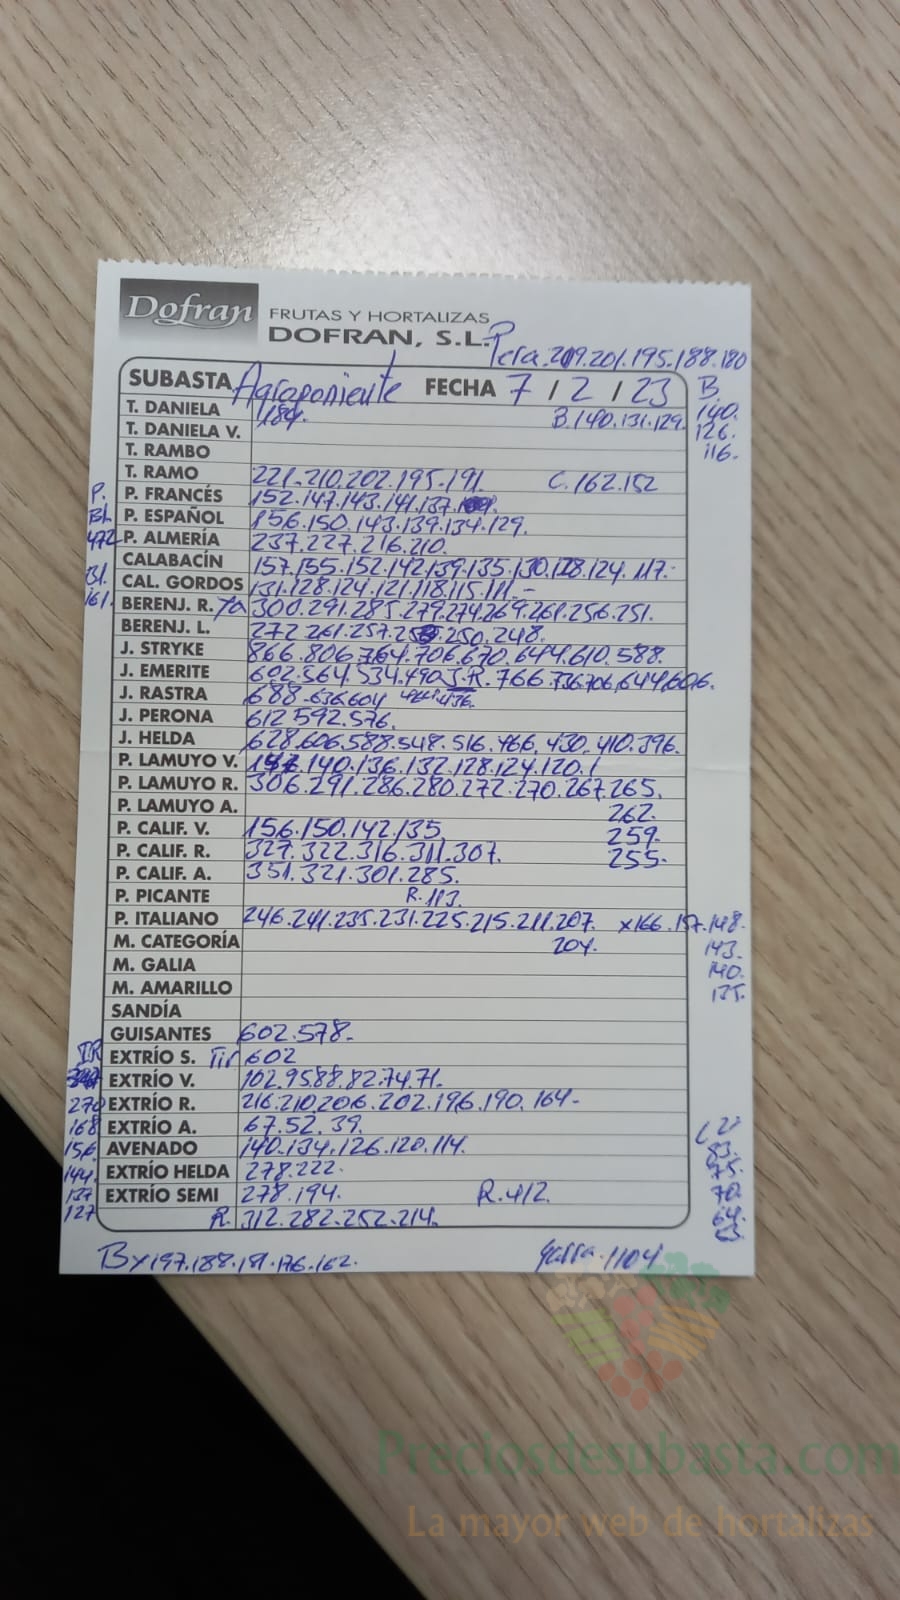 Dofran FRUTAS Y HORTALIZAS
DOFRAN, S.L.
Pera.209.201.195.188.180
SUBASTA Agraponiente FECHA 7 / 2 / 23 B.
T. DANIELA 184. B.140.131.129. 140.
T. DANIELA V. 126.
T. RAMBO 116.
T. RAMO 221.210.202.195.191. C.162.152
P. P. FRANCÉS 152.147.143.141.137.
BL P. ESPAÑOL 156.150.143.139.134.129.
472 P. ALMERÍA 237.227.216.210.
CALABACÍN 157.155.152.142.139.135.130.128.124.117.
Bl. CAL. GORDOS 131.128.124.121.118.115.111.-
161. BERENJ. R. 300.291.285.279.274.269.261.256.251.
BERENJ. L. 272.261.257. 250.248.
J. STRYKE 866.806.764.706.670.644.610.588.
J. EMERITE 602.564.534.490 J.R. 766.736.706.644.606.
J. RASTRA 688.636.604
J. PERONA 612.592.576.
J. HELDA 628.606.588.548.516.466.430.410.396.
P. LAMUYO V. 140.136.132.128.124.120.
P. LAMUYO R. 306.291.286.280.272.270.267.265.
P. LAMUYO A. 262.
P. CALIF. V. 156.150.142.135. 259.
P. CALIF. R. 327.322.316.311.307. 255.
P. CALIF. A. 351.321.301.285.
P. PICANTE R.113.
P. ITALIANO 246.241.235.231.225.215.211.207. x166.157.148.
M. CATEGORÍA 204. 143.
M. GALIA 140.
M. AMARILLO 135.
SANDÍA
GUISANTES 602.578-
IR EXTRÍO S. Tir 602
EXTRÍO V. 102.95.88.82.74.71.
270 EXTRÍO R. 216.210.206.202.196.190.164-
168 EXTRÍO A. 67.52.39.
156. AVENADO 140.134.126.120.114. 83.
144. EXTRÍO HELDA 278.222. 75.
137 EXTRÍO SEMI 278.194. R.412. 70.
127 R. 312.282.252.214. 64.
Bx197.188.181.176.162. Garra.1104
Preciosdesubasta.com
La mayor web de hortalizas